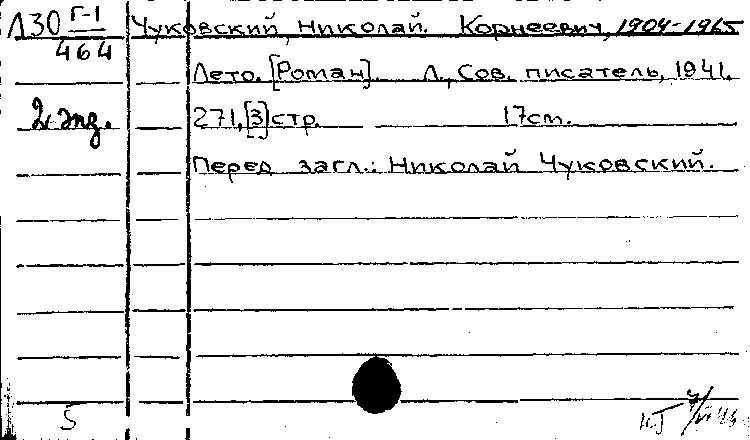 Л30 Г-1/464 Чуковский, Николай. Корнеевич, 1904-1965
Лето. [Роман]. Л., Сов. писатель, 1941.
2 экз. 271, [3] стр. 17 см.
Перед загл.: Николай Чуковский.
5